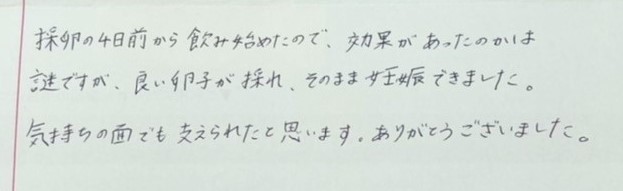 採卵の4日前から飲み始めたので、効果があったのかは
謎ですが、良い卵子が採れ、そのまま妊娠できました。
気持ちの面でも支えられたと思います。ありがとうございました。